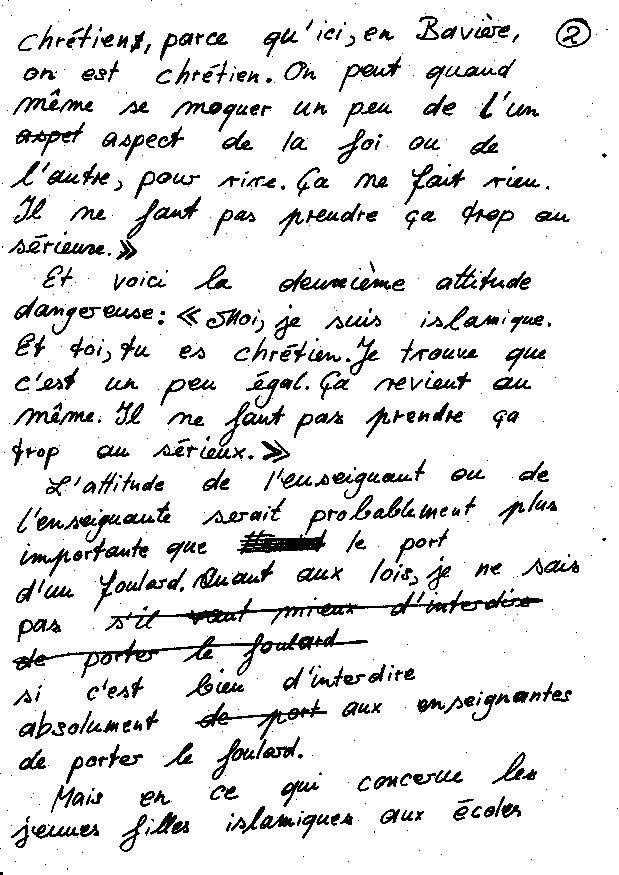 chrétiens, parce qu'ici, en Bavière, ②
on est chrétien. On peut quand
même se moquer un peu de l'un
aspet aspect de la foi ou de
l'autre, pour rire. Ça ne fait rien.
Il ne faut pas prendre ça trop au
sérieuse.»
Et voici la deuxième attitude
dangereuse: «Moi, je suis islamique.
Et toi, tu es chrétien. Je trouve que
c'est un peu égal. Ça revient au
même. Il ne faut pas prendre ça
trop au sérieux.»
L'attitude de l'enseignant ou de
l'enseignante serait probablement plus
importante que le port
d'un foulard. Quant aux lois, je ne sais
pas s'il vaut mieux d'interdire
de porter le foulard
si c'est bien d'interdire
absolument de port aux enseignantes
de porter le foulard.
Mais en ce qui concerne les
jeunes filles islamiques aux écoles